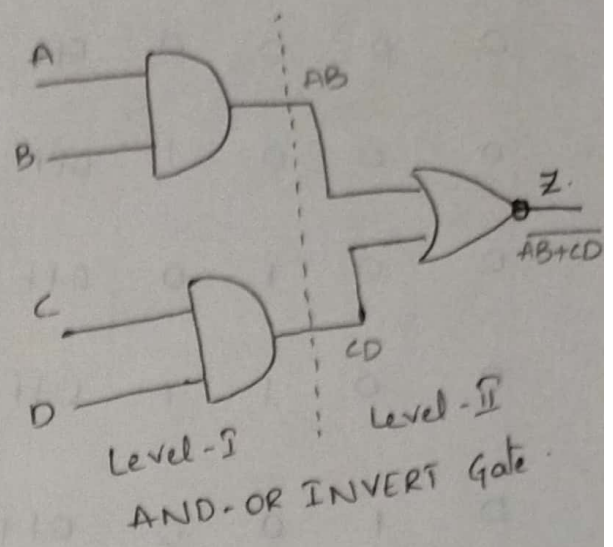 A
AB
B
Z.
\overline{AB+CD}
C
CD
D
Level-I
Level-II
AND-OR INVERT Gate.